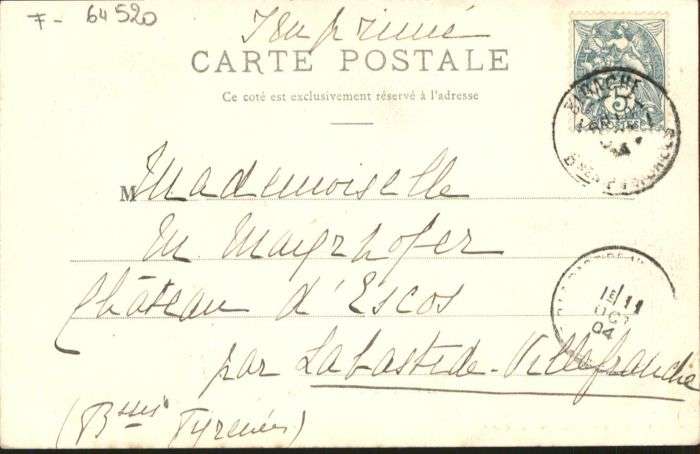 F- 64520
Imprimé
CARTE POSTALE
Ce coté est exclusivement réservé à l'adresse
5
POSTES
BSES PYRÉNÉES
M Mademoiselle
M. Mayrhofer
Château d'Escos
par Labastide-Villefranche
(Bses Pyrenées)
11
OCT
04